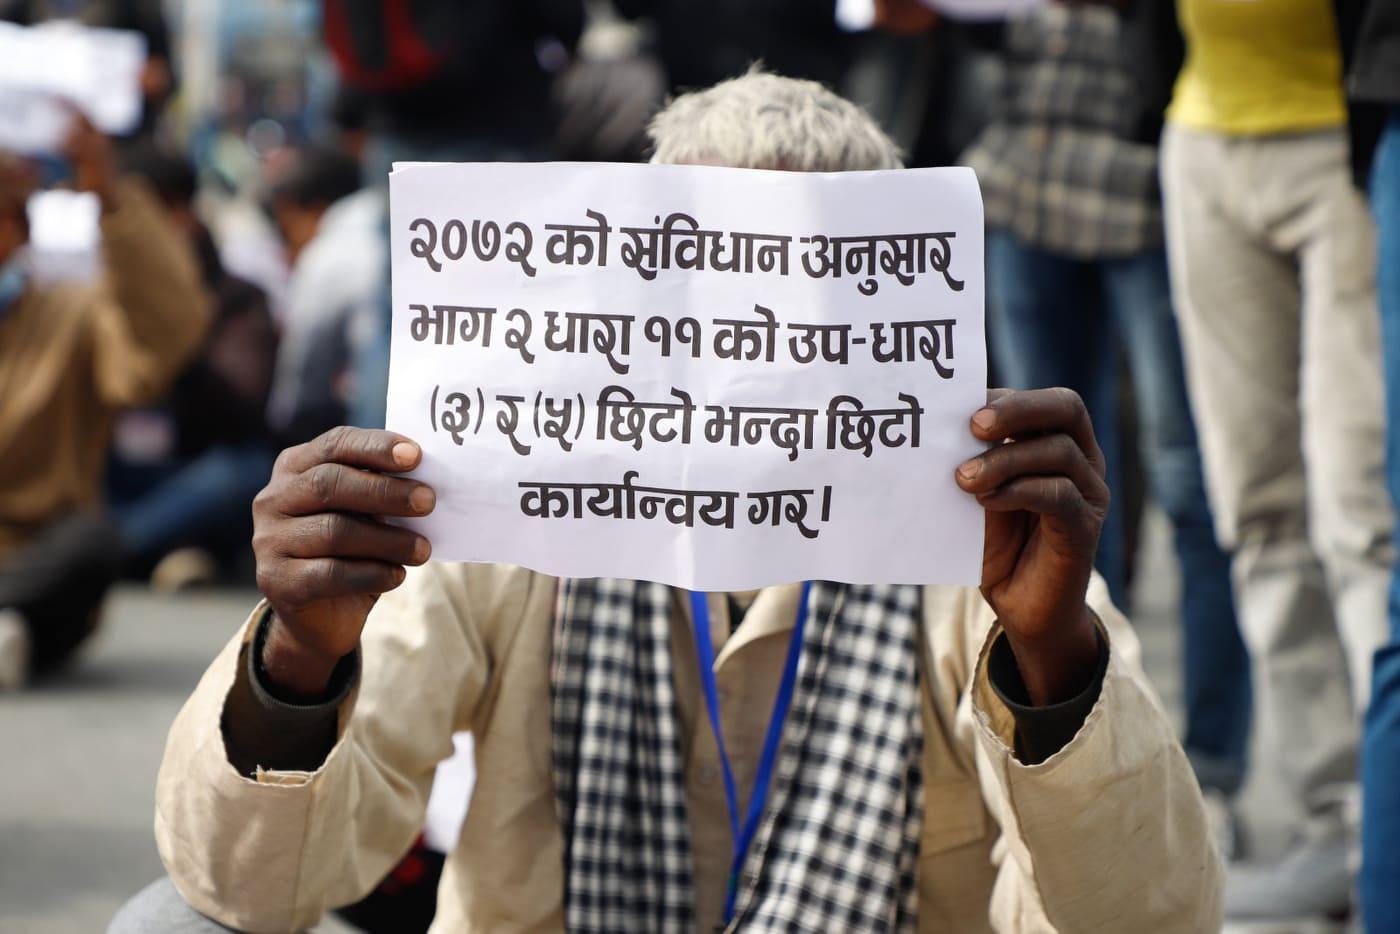 २०७२ को संविधान अनुसार
भाग २ धारा ११ को उप-धारा
(३) र (५) छिटो भन्दा छिटो
कार्यान्वय गर।